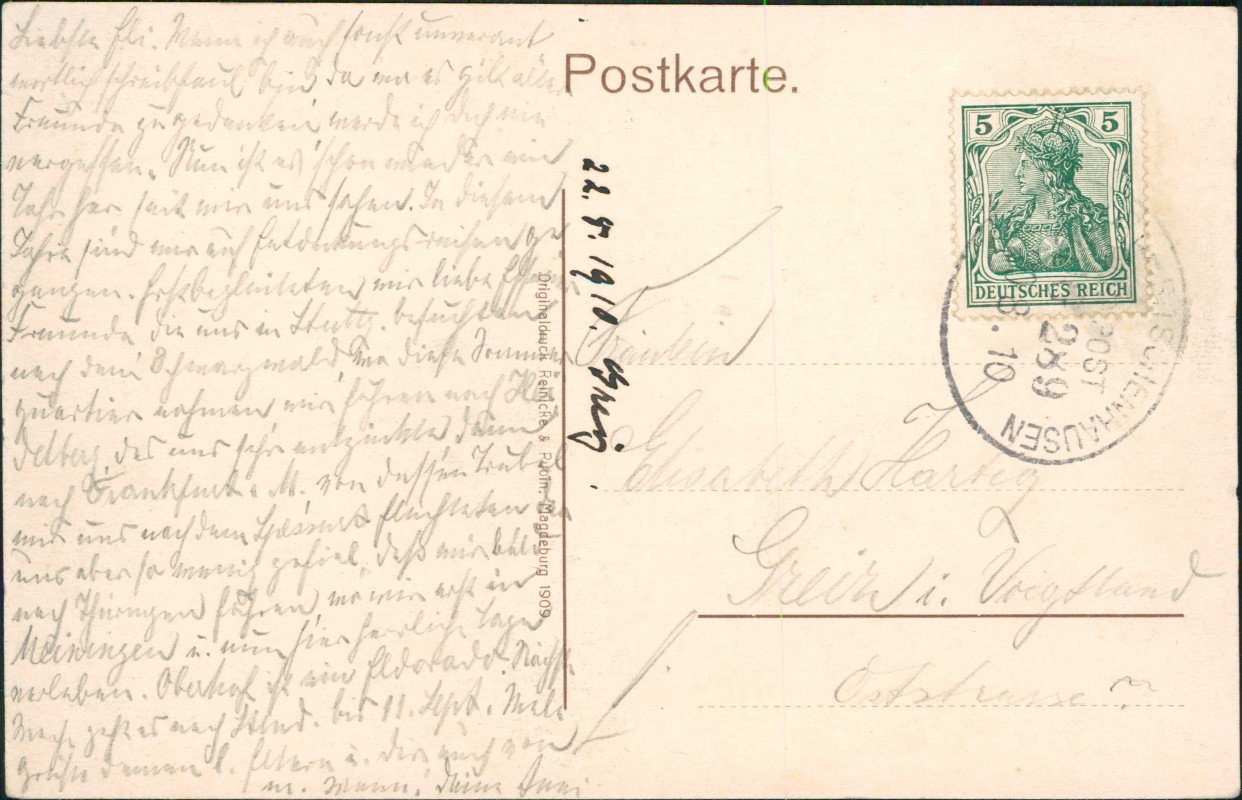 Liebste Elli. Wenn ich auch sonst unverant
wortlich schreibfaul bin, da wo es gilt aller
Freunde zu gedenken werde ich Dich nie
vergessen. Nun ist es schon wieder ein
Jahr her seit wir uns sahen. In diesem
Jahre sind wir auf Entdeckungsreisen ge
gangen. Erst begleiteten wir liebe
Freunde die uns in Stuttg. besuchten
nach dem Schwarzwald, wo diese Sommer
quartier nahmen, wir fuhren nach Hei
delberg, das uns sehr entzückte dann
nach Frankfurt a. M. von dessen Trubel
wir uns nach dem flüchteten
uns aber so wenig gefiel, daß wir bald
nach Thüringen fuhren, wo wir erst in
Meiningen u. nun hier herrliche Tage
verleben. Oberhof ist ein Eldorado. Nächste
Woche geht es nach bis 11. Sept. Viele
Grüße Deinen l. Eltern u. Dir auch von
m. Mann. Deine
Postkarte.
22. 8. 1910.
Originaldruck Reinicke & Rubin, Magdeburg 1909.
5 5
DEUTSCHES REICH
RITSCHENHAUSEN
POST
269
8. 10
Fräulein
Elisabeth Hartig
Greiz i. Voigtland
Oststrasse ?